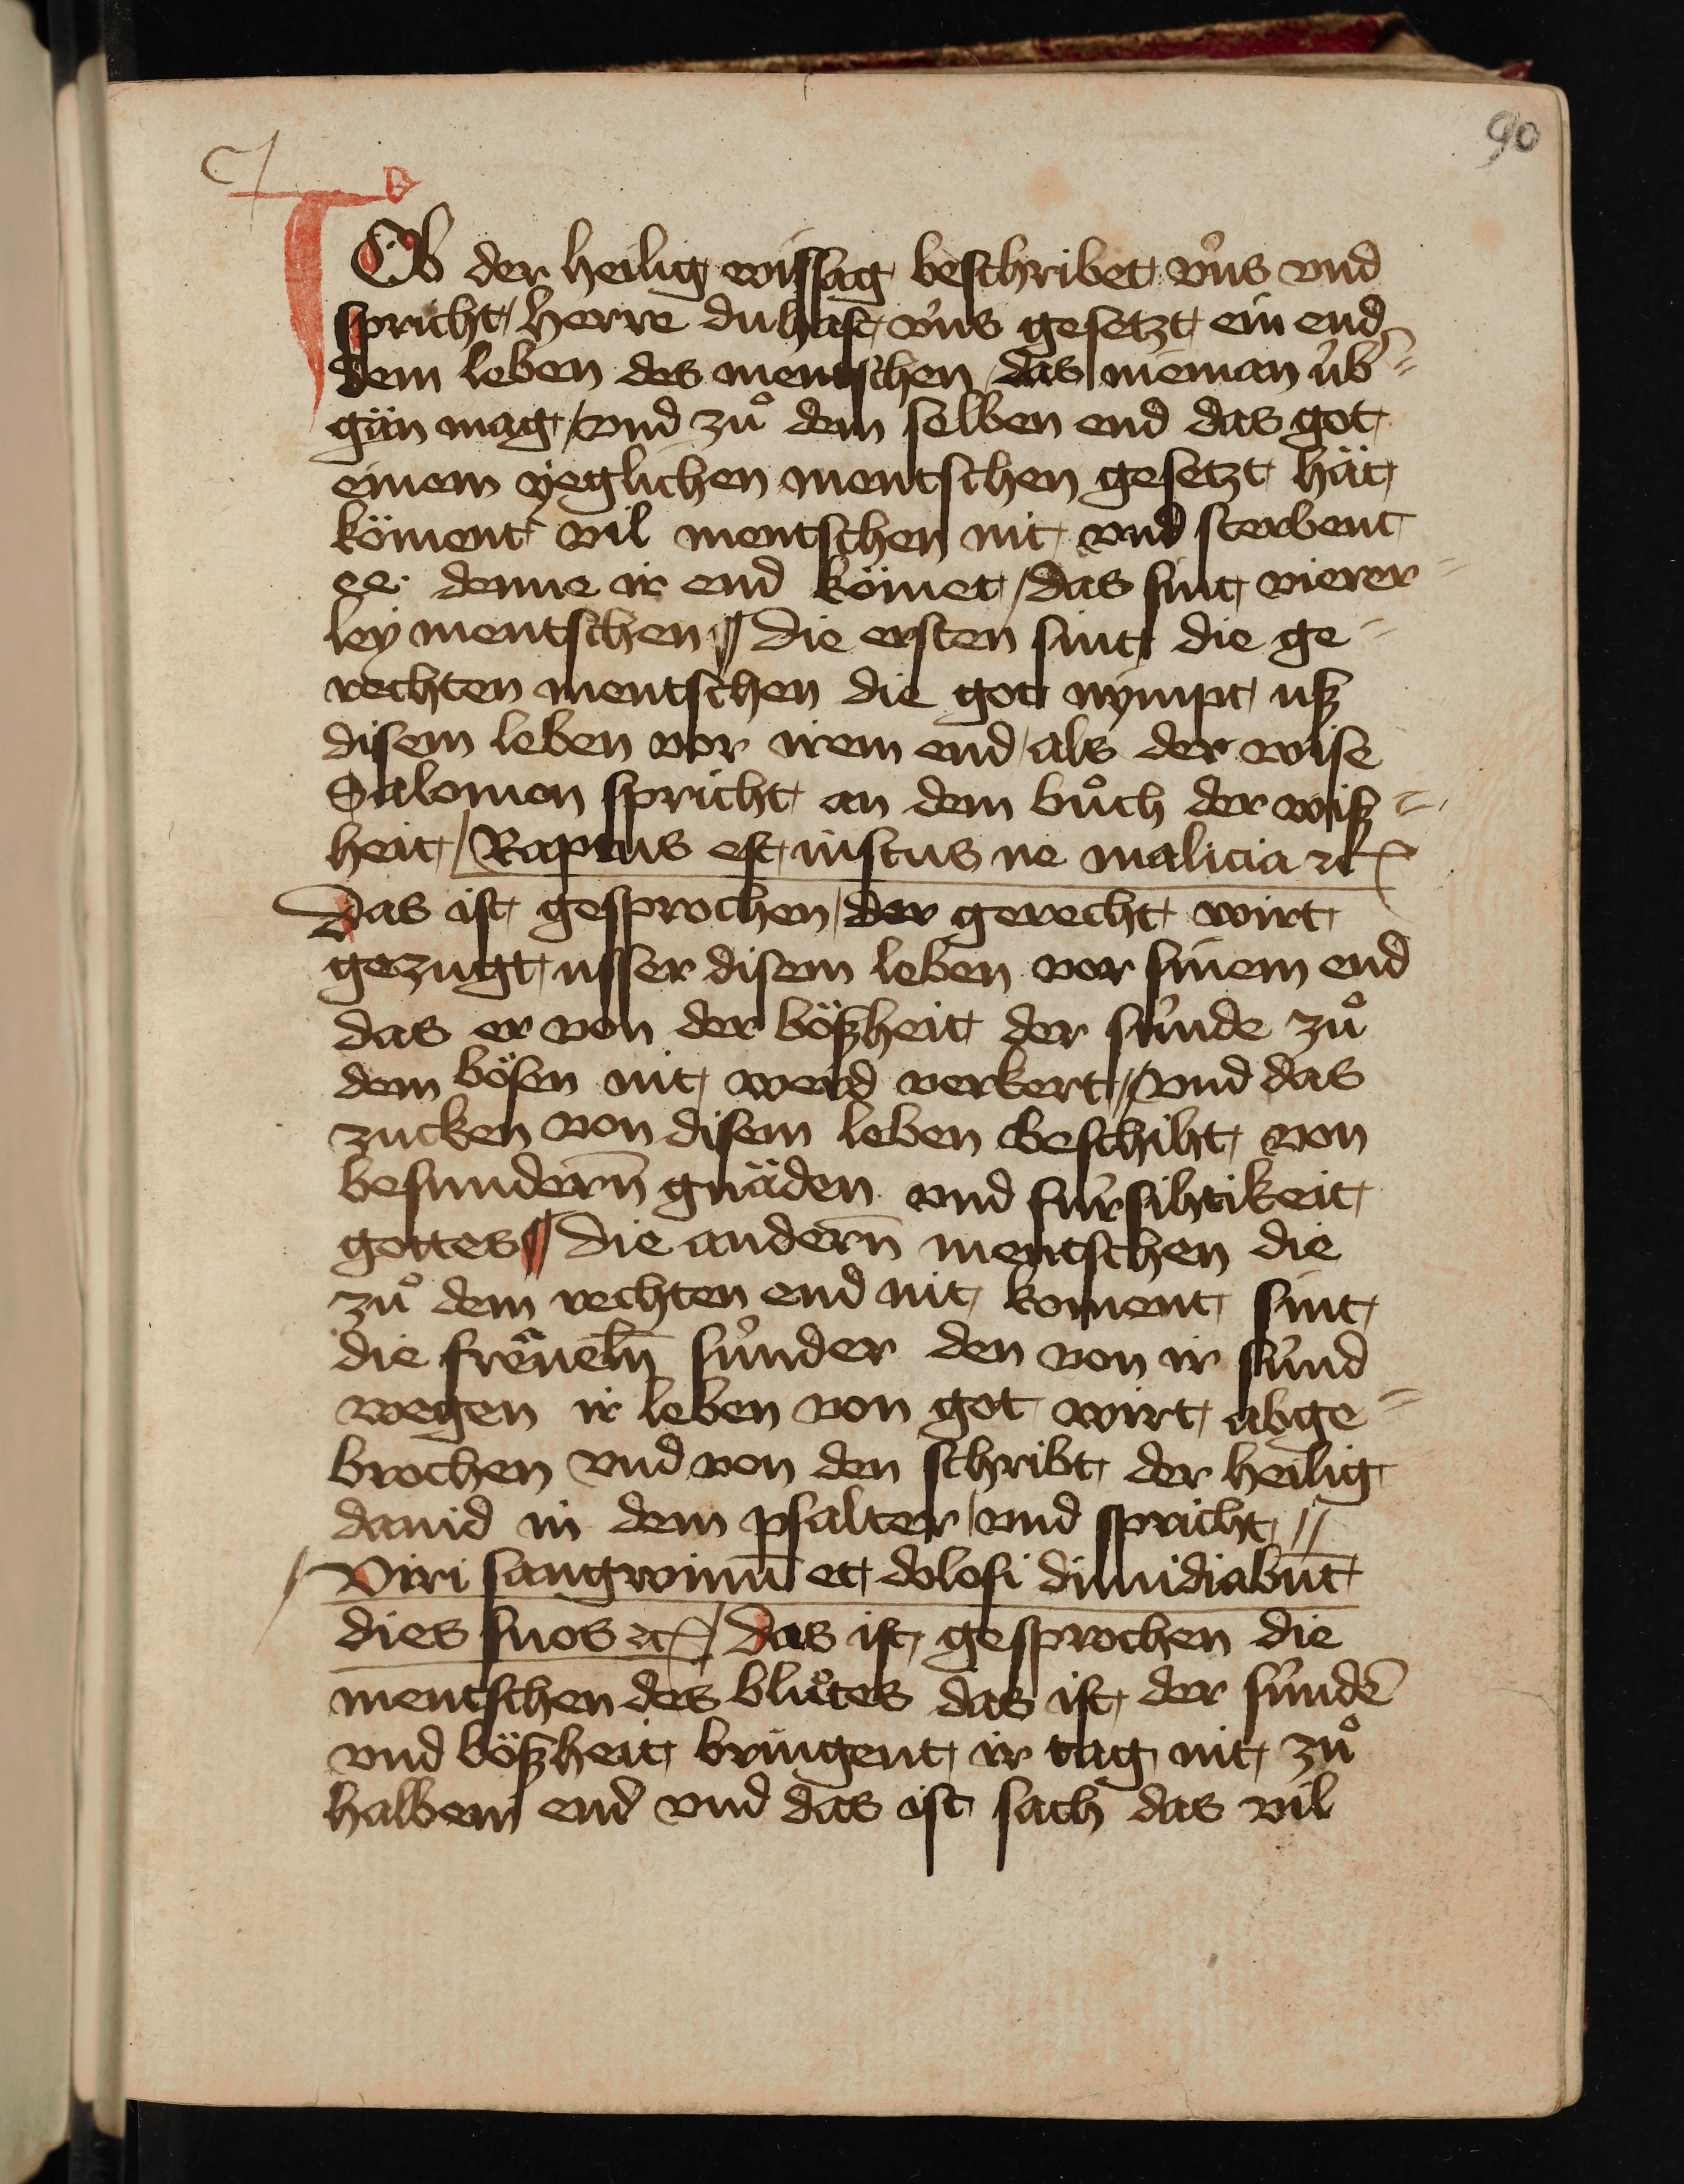 90
TOb der heilig wissag beschribet vͤns vnd
spricht / Herre du hast vͤns gesetzt ein end
dem leben des mentschen / das nieman v́b=
gän mag / vnd zuͦ dem selben end das got
einem yeglichen mentschen gesetzt hät
köment vil mentschen nit vnd sterbent
ee denne ir end kömet / das sint vierer=
ley mentschen ¶ Die ersten sint die ge=
rechten mentschen die got nympt uß
disem leben vor irem end / als der wise
Salomon spricht an dem buͦch der wiß=
heit / Raptus est iustus ne malicia ⁊c
Das ist gesprochen / der gerecht wirt
gezugt usser disem leben vor sinem end
das er von der bößheit der súnde zuͦ
dem bösen nit werd verkert // vnd das
zucken von disem leben beschiht von
besundern̄ gnäden vnd fúrsihtikeit
gottes ¶ Die andern̄ mentschen die
zuͦ dem rechten end nit koment sint
die freͮueln̄ súnder den von ir súnd
wegen ir leben von got wirt abge=
brochen vnd von den schribt der heilig
dauid in dem psalter / vnd spricht //
Viri sangwinū et dolosi dimidiabūt
dies suos ⁊c / Das ist gesprochen die
mentschen des bluͦtes das ist der súndē
vnd bößheit bringent ir tag nit zuͦ
halbem end vnd das ist sach das vil